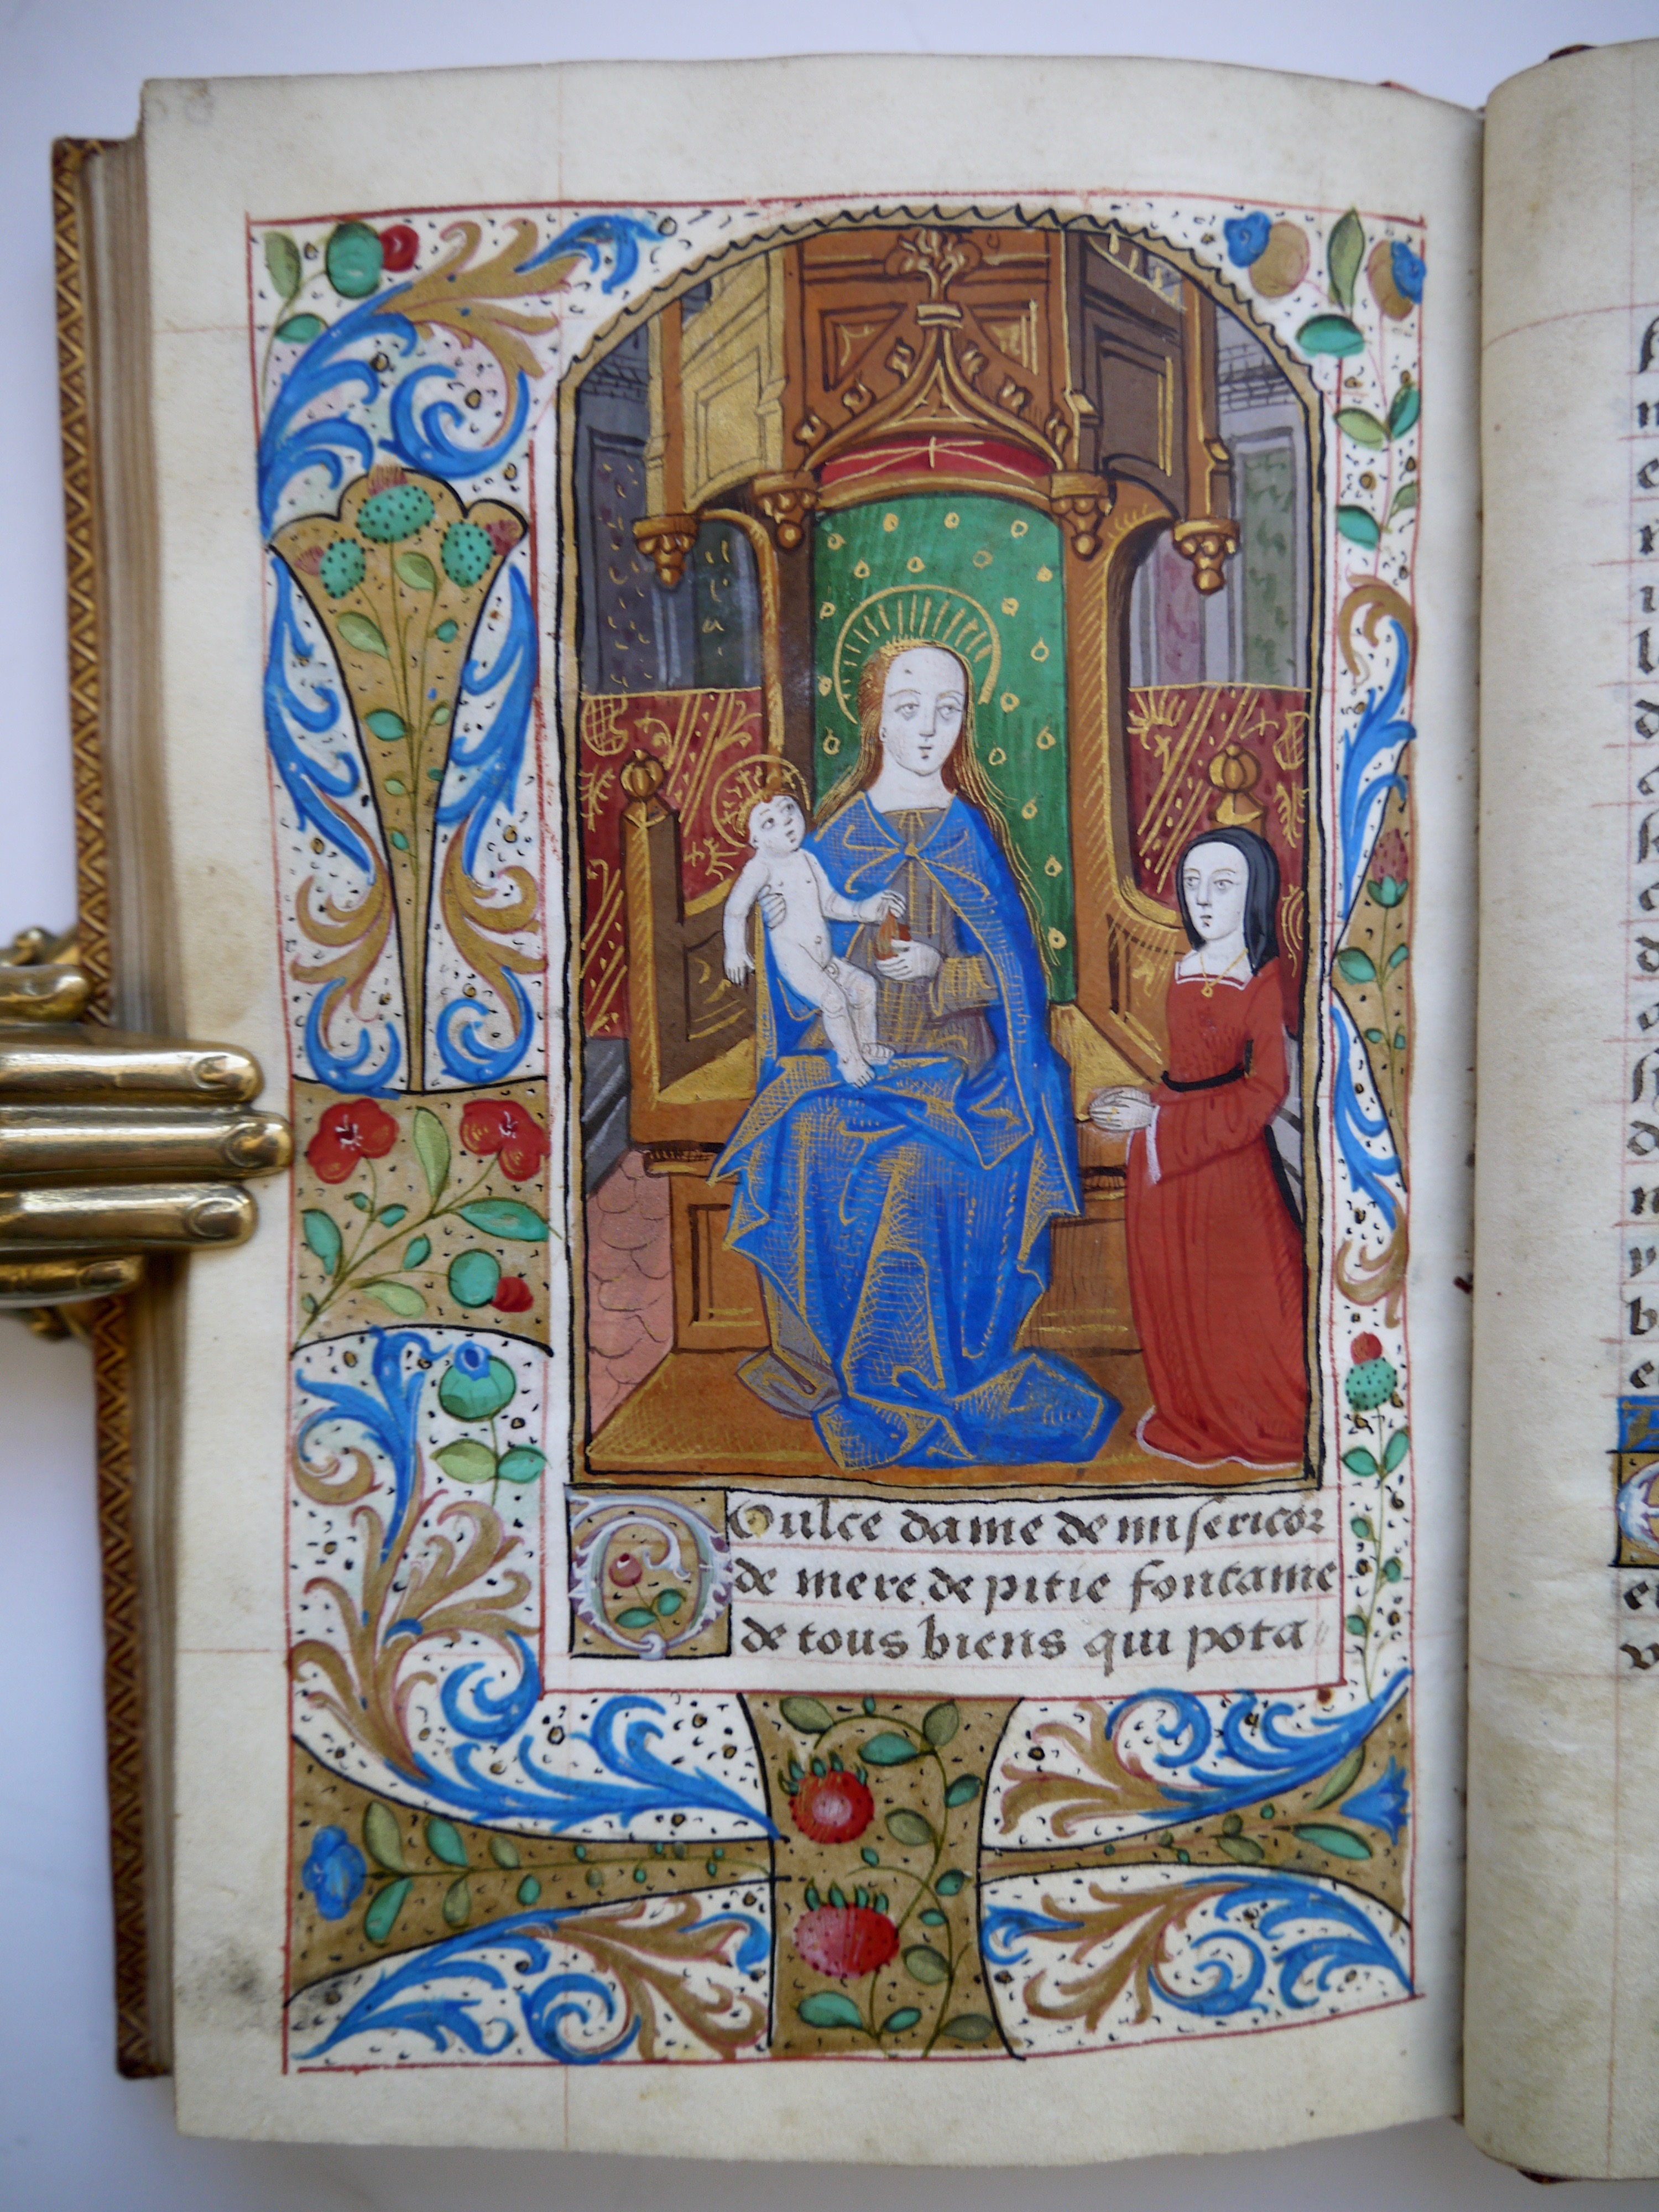 Doulce dame de misericor
de mere de pitie fontaine
de tous biens qui pota